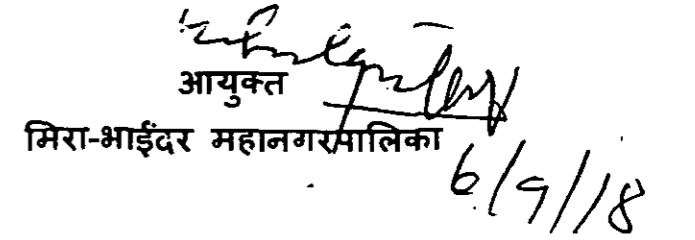 आयुक्त
मिरा-भाईंदर महानगरपालिका
6/9/18